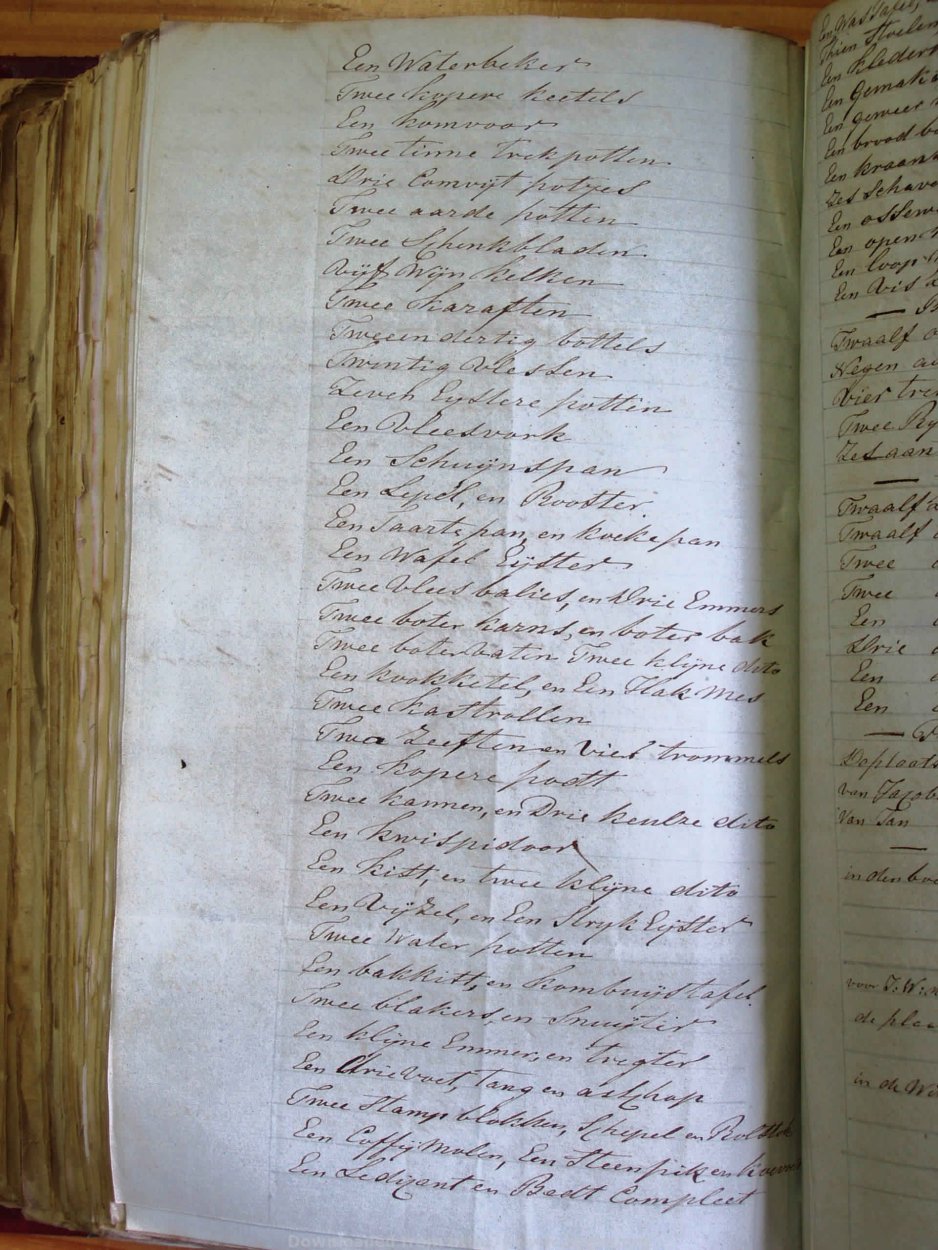 Een Waterbeker
Twee kopere keetels
Een komvoor
Twee tinne Trekpotten
Drie Comvijt potjes
Twee aarde potten
Twee Schenkbladen
Vijf Wijn kelken
Twee karaften
Tweeen dertig bottels
Twintig Vlessen
Zeven Eijstere pottin
Een Vleesvork
Een Schuijnspan
Een Lepel, en Rooster
Een Taarte pan, en koeke pan
Een Wafel Eijster
Twee Vlees balies, en Drie Emmers
Twee boter karns, en boter bak
Twee boter vatin Twee klijne dito
Een kookketel, en Een Hak Mes
Twee kastrollen
Twee Zeeften en Vier trommels
Een kopere pott
Twee kannen, en Drie keulze dito
Een kwispidoor
Een kist, en twee klijne dito
Een Vijzel, en Een Stryk Eijster
Twee Water potten
Een bakkist, en kombuijstafel
Twee blakers, en Snuijter
Een klijne Emmer, en tregter
Een Drievoet, Tang en asschop
Twee Stamp blokken, Schepel en Rolstok
Een Coffij Molen, Een Steen pik en
Een Ledizant en Bedt Compleet
Thien Stoelen
Een
Een
Een geweer
Een brood
Een
Zes
Een
Een
Een loop
Een Vis
Twaalf
Negen
Vier
Twee
Zes aan
Twaalf
Twaalf
Twee
Twee
Een
Drie
Een
Een
De plaats
van Jacob
Van Jan
in den
voor J: W:
de plaa
in de